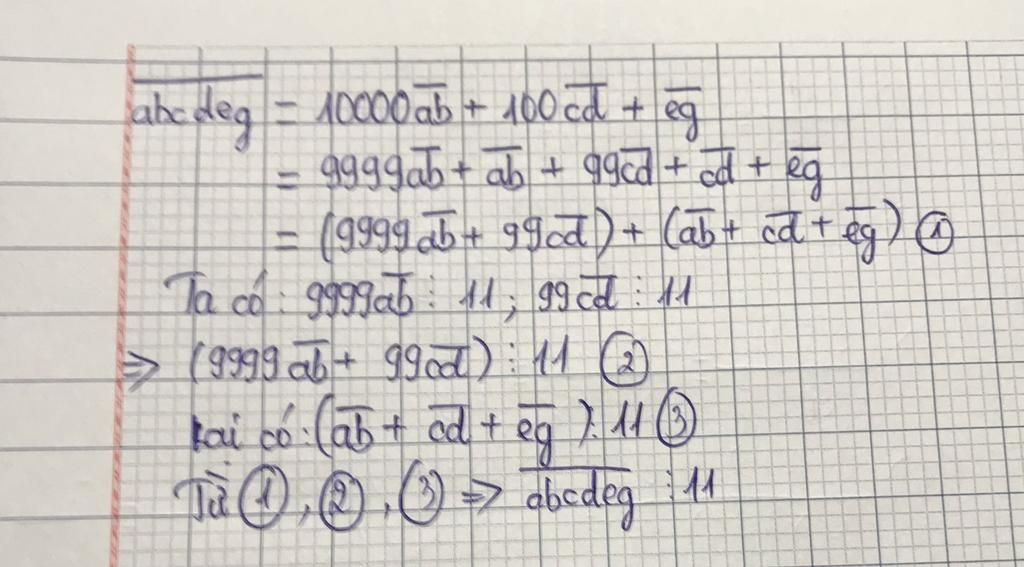 \overline{abcdeg} = 10000\overline{ab} + 100\overline{cd} + \overline{eg}
= 9999\overline{ab} + \overline{ab} + 99\overline{cd} + \overline{cd} + \overline{eg}
= (9999\overline{ab} + 99\overline{cd}) + (\overline{ab} + \overline{cd} + \overline{eg}) ①
Ta có: 9999\overline{ab} ⋮ 11; 99\overline{cd} ⋮ 11
⇒ (9999\overline{ab} + 99\overline{cd}) ⋮ 11 ②
Lại có: (\overline{ab} + \overline{cd} + \overline{eg}) ⋮ 11 ③
Từ ①, ②, ③ ⇒ \overline{abcdeg} ⋮ 11